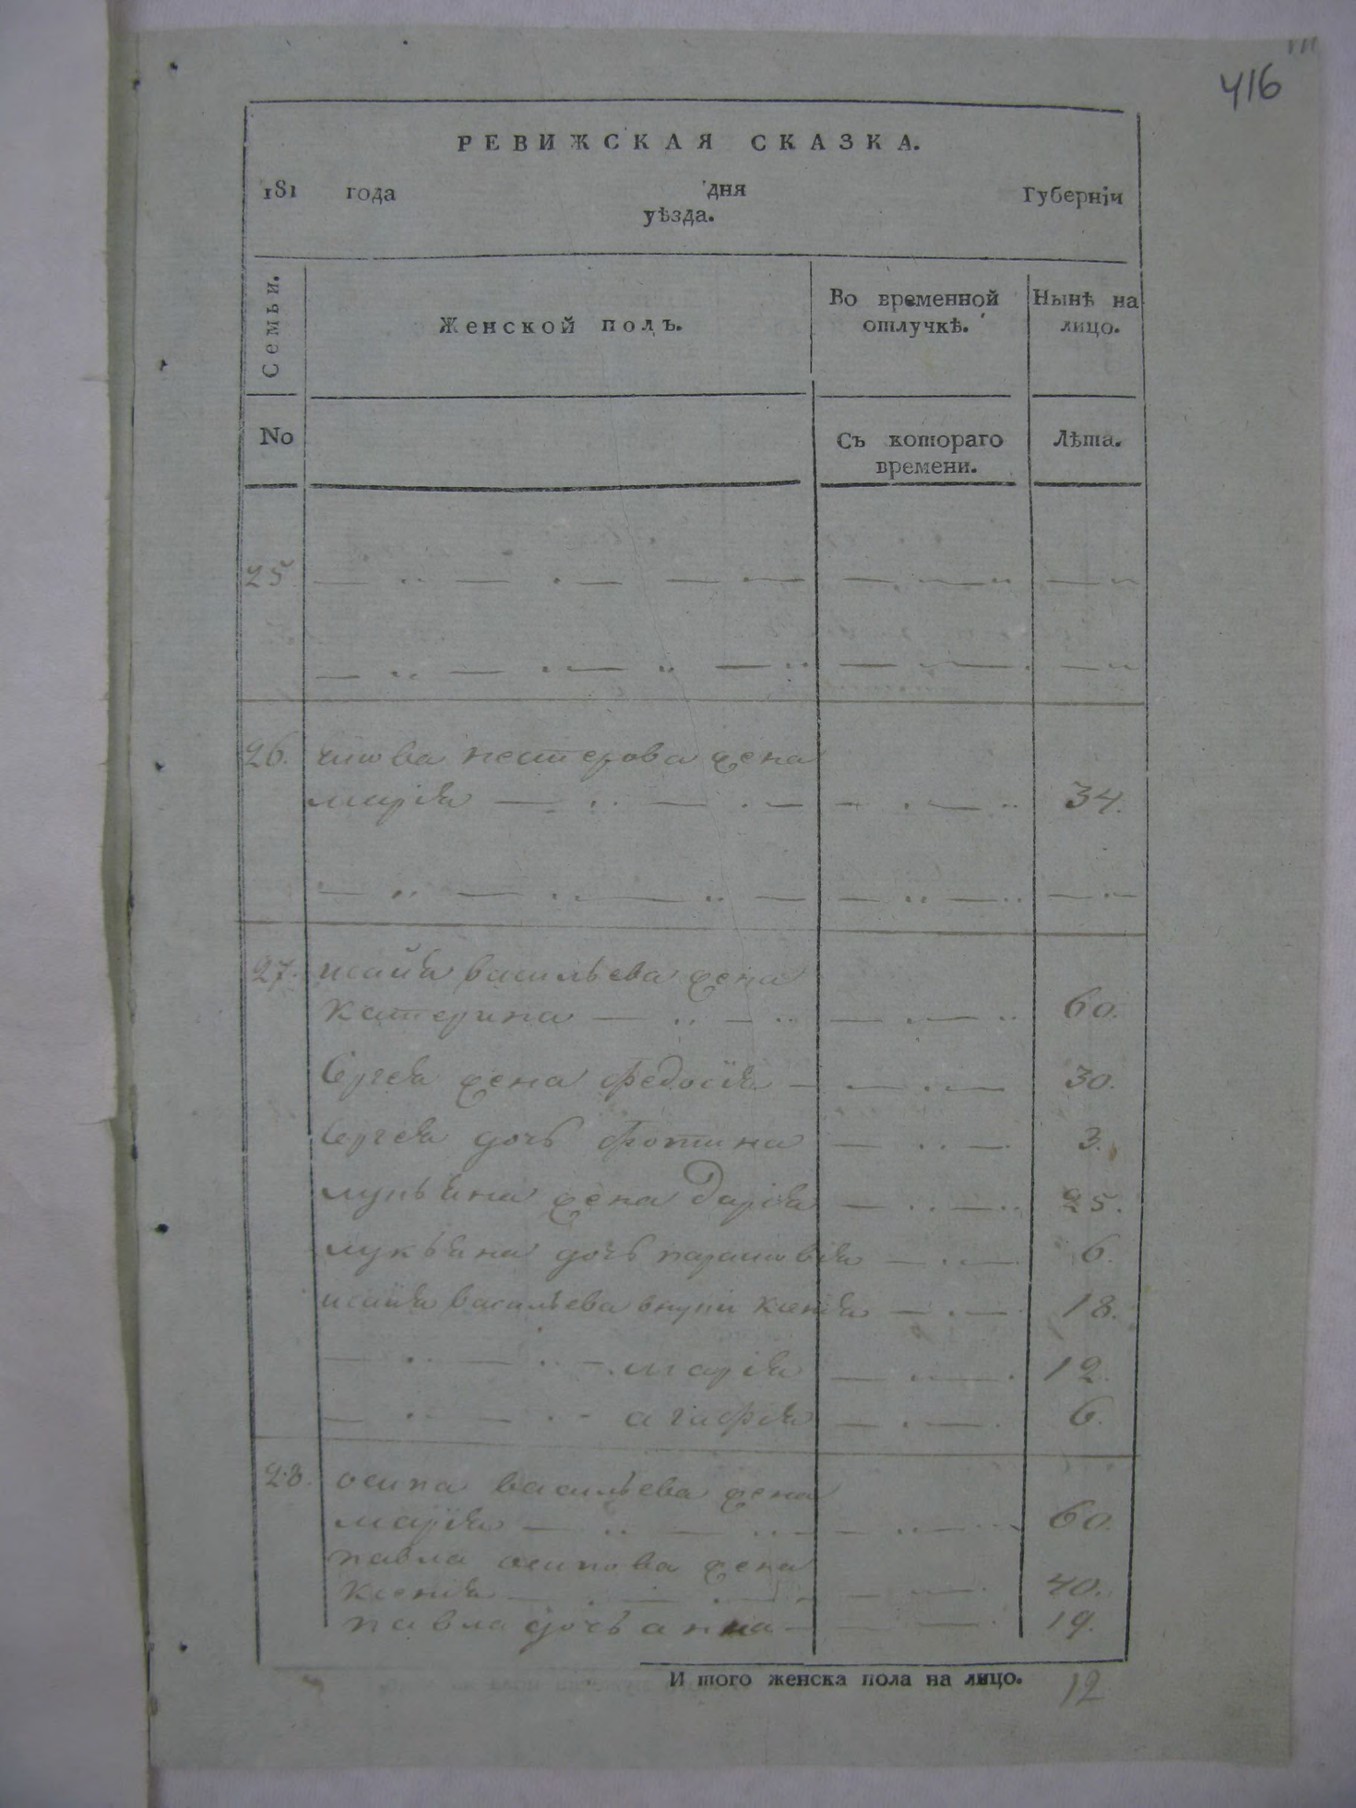 416
РЕВИЖСКАЯ СКАЗКА.
181 года дня Губерніи
уѣзда.
Семьи.
Женской полъ.
Во временной отлучкѣ.
Нынѣ на лицо.
No
Съ котораго времени.
Лѣта.
25
26. нестерова жена
марія 34.
27. исаія васильева жена
катерина 60.
Сергея жена федосія 30.
Сергея дочь фотина 3.
лукьяна жена дарія 25.
лукьяна дочь парасковія 6.
исаія васильева внуки ксенія 18.
марія 12.
агафія 6.
28. осипа васильева жена
марія 60.
павла осипова жена
ксенія 40.
павла дочь анна 19.
И того женска пола на лицо. 12